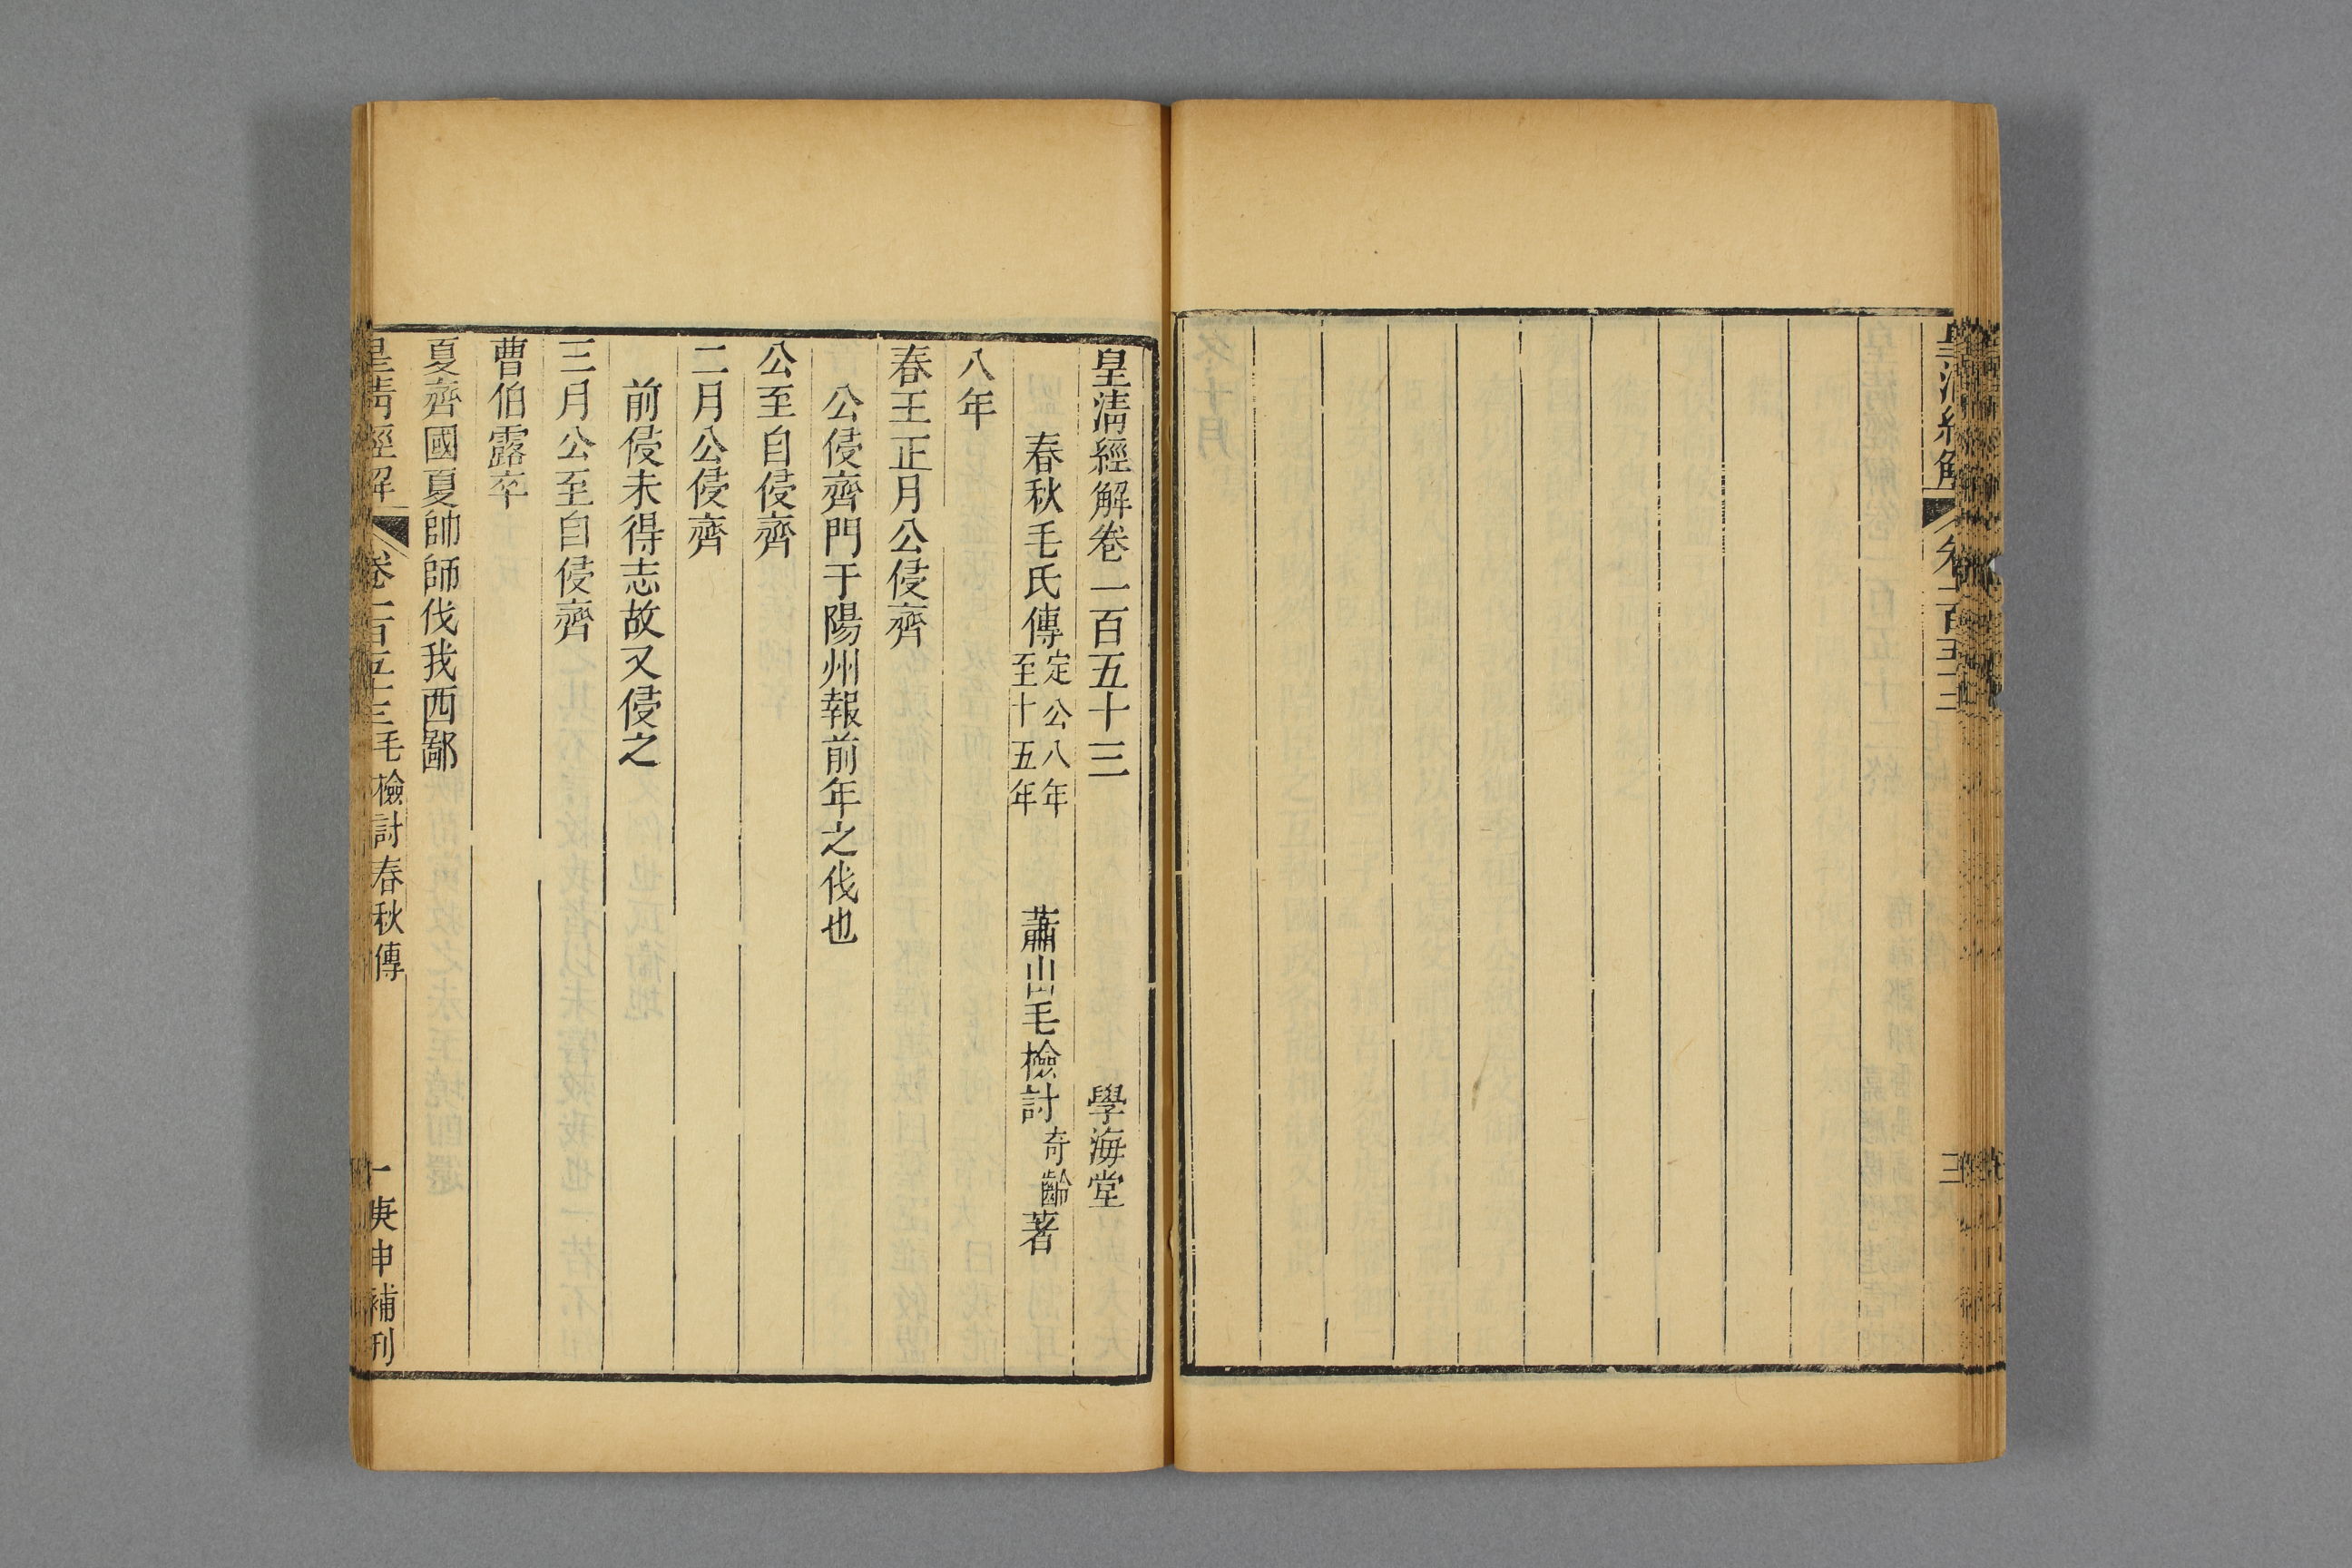 皇清經解卷一百五十三 學海堂
春秋毛氏傳定公八年至十五年 蕭山毛檢討奇齡著
八年
春王正月公侵齊
公侵齊門于陽州報前年之伐也
公至自侵齊
二月公侵齊
前侵未得志故又侵之
三月公至自侵齊
曹伯露卒
夏齊國夏帥師伐我西鄙
皇清經解 卷一百五十三毛檢討春秋傳 一 庚申補刊